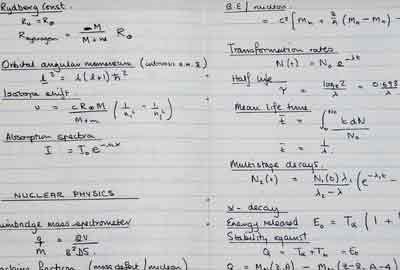 Rydberg Const.
R∞ = R∞
R hydrogen = ∞M / M+m R∞
Orbital angular momentum
l² = l(l+1) ħ²
Isotope shift.
ν = cR∞M / M+m (1/n₁² - 1/n₂²)
Absorption spectra
I = I₀ e^-nσx
NUCLEAR PHYSICS
Bainbridge mass spectrometer
q/m = 2V / B²DS
fraction (mass defect/nucleon)
B.E/nucleon
= c² [Mn + Z/A (MH - Mn) -
Transformation rates
N(t) = N₀ e^-λt
Half life
τ = loge2 / λ = 0.693 / λ
Mean life time
t̄ = ∫₀^N₀ t dN / N₀
t̄ = 1/λ
Multistage decays.
N₂(t) = N₁(0) λ₁ / λ₂ - λ₁ (e^-λ₁t -
α - decay
Energy released E₀ = Tα (1 +
Stability against
Q = Tα + Tb = E₀
Q = (Z,A) - (Z-2, A-4)